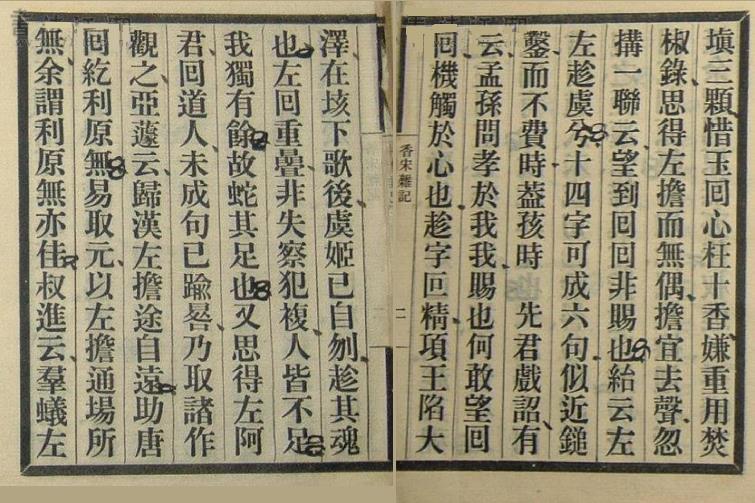 塡三顆惜玉囘心枉十香嫌重用焚
椒錄思得左擔而無偶擔宜去聲忽
搆一聯云望到囘囘非賜也紿云左
左趁虞兮十四字可成六句似近鎚
鑿而不費時葢孩時 先君戲詔有
云孟孫問孝於我我賜也何敢望囘
囘機觸於心也趁字叵精項王陷大
香宋雜記
二
澤在垓下歌後虞姬已自刎趁其魂
也左回重疊非失察犯複人皆不足
我獨有餘故蛇其足也又思得左阿
君囘道人未成句已踰晷乃取諸作
觀之亞蘧云歸漢左擔途自遠助唐
囘紇利原無易取元以左擔通場所
無余謂利原無亦佳叔進云羣蟻左